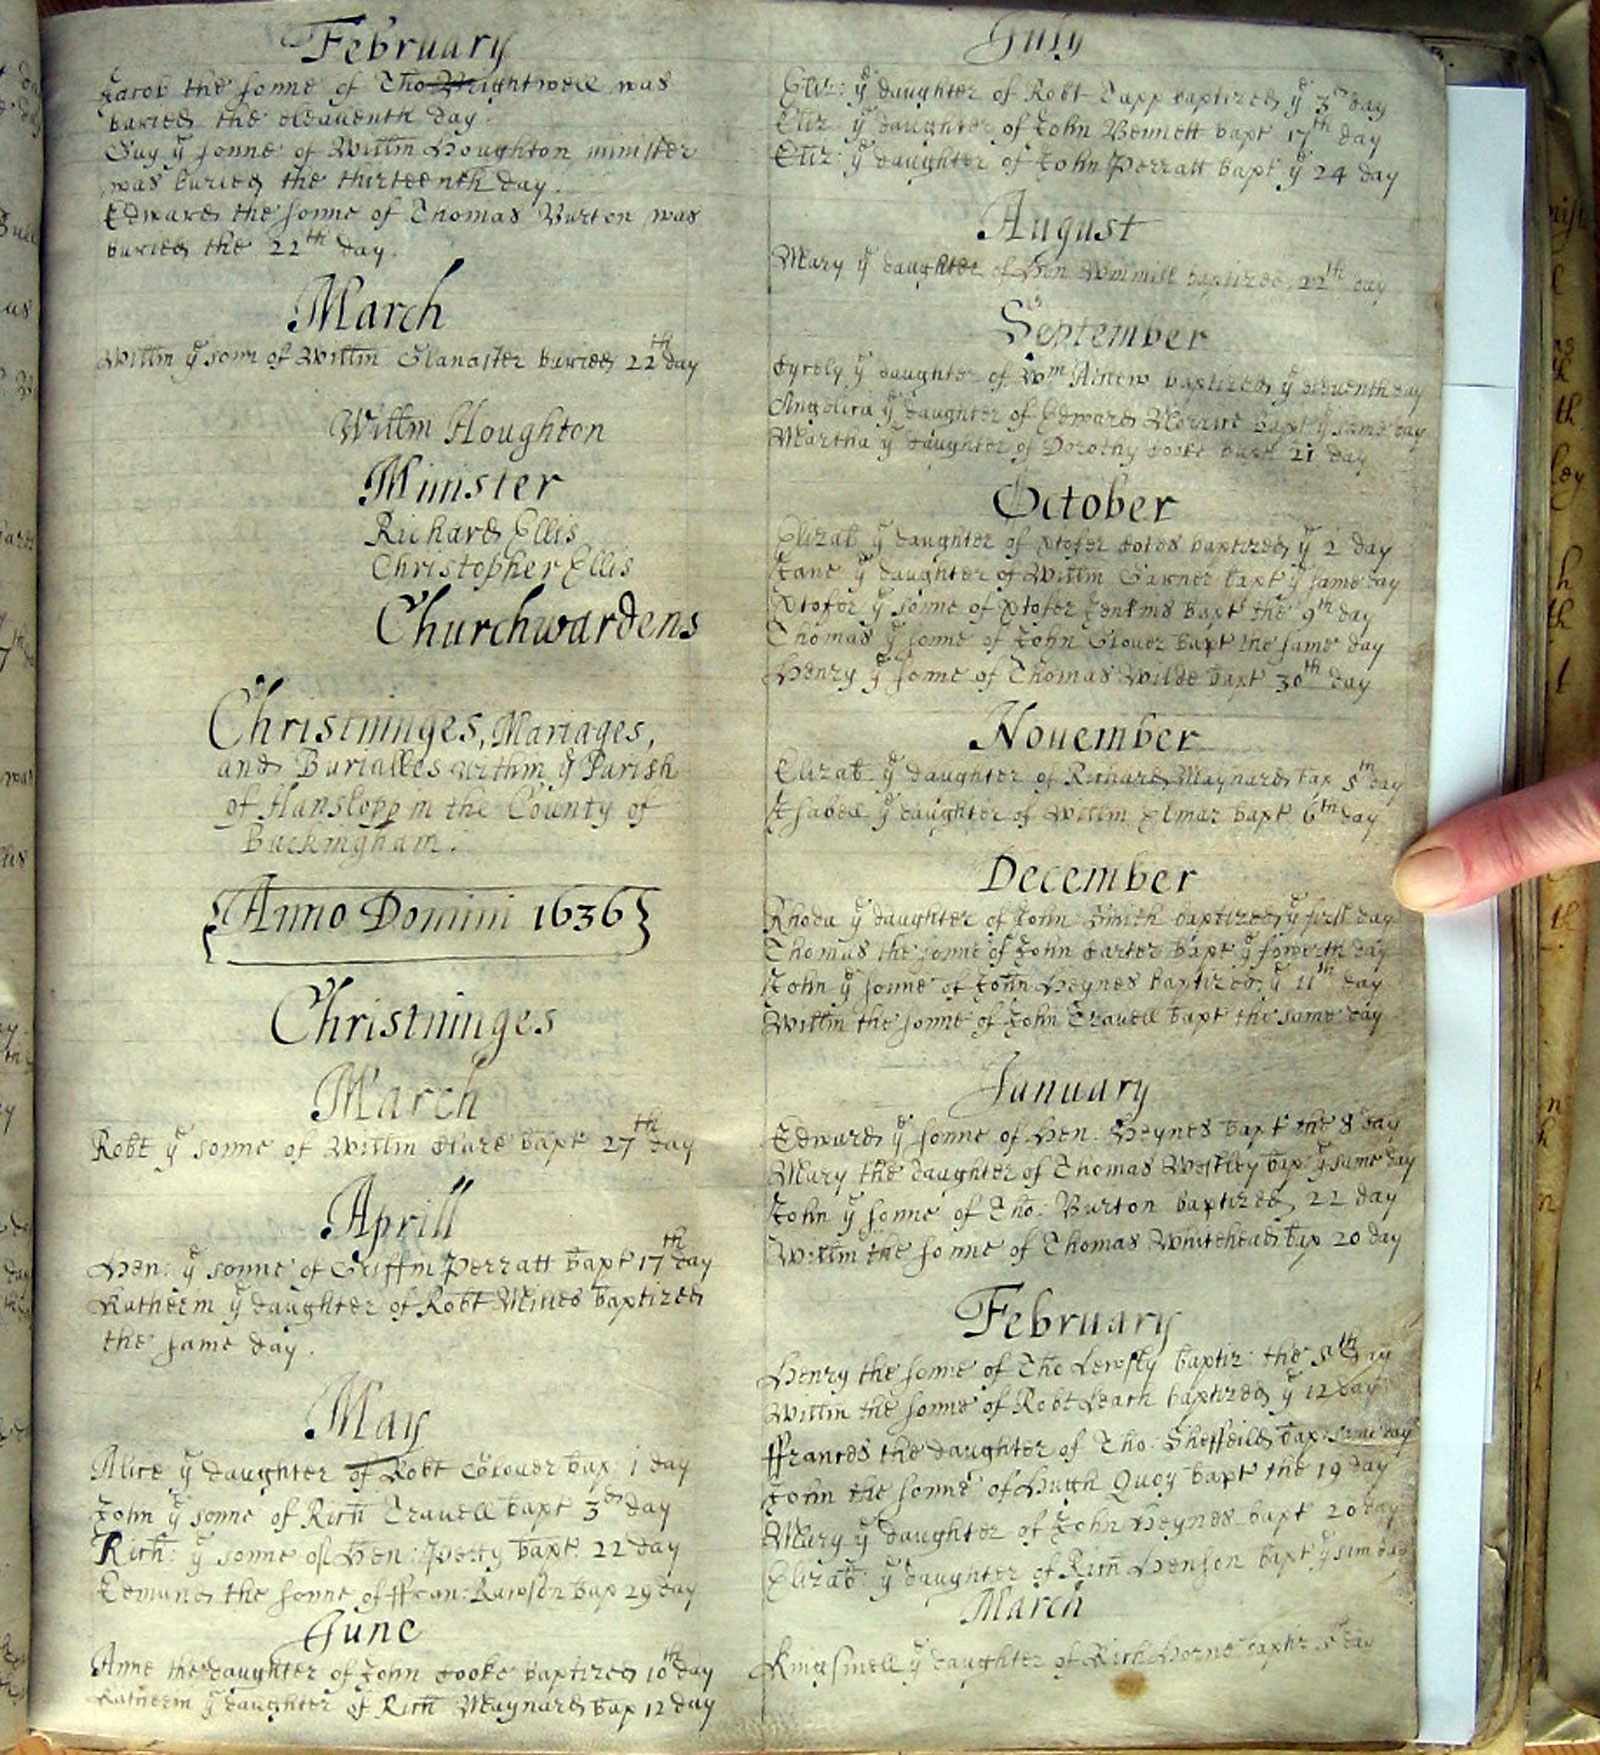 February
Jacob the sonne of Tho Wrightwell was
buried the eleaventh day.
Guy yͤ sonne of Willm Houghton minister
was buried the thirteenth day.
Edward the sonne of Thomas Burton was
buried the 22th day.
March
Willm yͤ sonn of Willm Glanaster buried 22th day
Willm Houghton
Minister
Richard Ellis
Christopher Ellis
Churchwardens
Christninges, Mariages,
and Burialles within yͤ Parish
of Hanslopp in the County of
Buckingham.
Anno Domini 1636
Christninges
March
Robt yͤ sonne of Willm bapt 27th day
Aprill
Hen: yͤ sonne of Griffin Perratt bapt 17th day
Katherin yͤ daughter of Robt baptized
the same day.
May
Alice yͤ daughter of Robt bap: 1 day
John yͤ sonne of Rich Travell bapt 3d day
Rich: yͤ sonne of Hen: Petty bapt: 22 day
Edmund the sonne of ffran: Rawson bap 29 day
June
Anne the daughter of John Cooke baptized 10th day
Katherin yͤ daughter of Rich Maynard bap 12 day
July
Eliz: yͤ daughter of Robt Tapp baptized yͤ 3d day
Eliz: yͤ daughter of John Bennett bapt 17th day
Eliz: yͤ daughter of John Perratt bapt yͤ 24 day
August
Mary yͤ daughter of Hen Wimmill baptized 22th day
September
yͤ daughter of Wm baptized yͤ eleventh day
Angelica yͤ daughter of Edward bapt yͤ same day
Martha yͤ daughter of Dorothy Cooke bapt 21 day
October
Elizab yͤ daughter of Xtofer Coles baptized yͤ 2 day
Jane yͤ daughter of Willm Garner bapt yͤ same day
Xtofer yͤ sonne of Xtofer Jenkins bapt the 9th day
Thomas yͤ sonne of John Glover bapt the same day
Henry yͤ sonne of Thomas Wilde bapt 30th day
November
Elizab yͤ daughter of Richard Maynard bap 5th day
Isabell yͤ daughter of Willm Elmar bapt 6th day
December
Rhoda yͤ daughter of John Smith baptized yͤ first day
Thomas the sonne of John Carter bapt yͤ fowerth day
John yͤ sonne of John Heynes baptized yͤ 11th day
Willm the sonne of John Travell bapt the same day
January
Edward yͤ sonne of Hen: Heynes bapt the 8 day
Mary the daughter of Thomas Westley bap yͤ same day
John yͤ sonne of Tho: Burton baptized 22 day
Willm the sonne of Thomas Whitehead bap 20 day
February
Henry the sonne of Tho Lewsly baptiz: the 5th day
Willm the sonne of Robt Leach baptized yͤ 12 day
ffrances the daughter of Tho: Sheffeild bap: same day
John the sonne of Hugh Quoy bapt the 19 day
Mary yͤ daughter of John Heynes bapt 20 day
Elizab: yͤ daughter of Rich Henson bapt yͤ sam day
March
Kingsmell yͤ daughter of Rich Horne baptiz 5th day